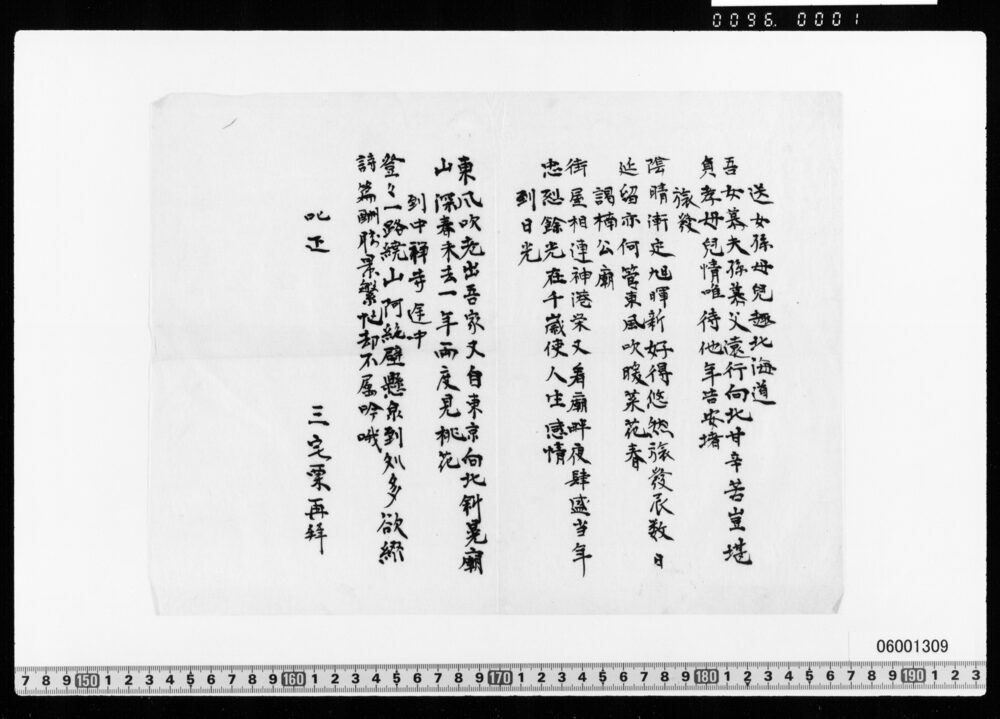 0096. 0001
送女孫母兒趣北海道
吾女慕夫孫慕父遠行向北甘辛苦豈堪
負孝母兒情唯待他年告安堵
旅發
陰晴漸定旭暉新好得悠然旅發辰数日
延留亦何管東風吹暖菜花春
謁楠公廟
街屋相連神港栄又看廟畔夜肆盛当年
忠烈餘光在千歳使人生感情
到日光
東風吹老出吾家又自東京向北斜晃廟
山深春未去一年両度見桃花
到中禅寺途中
登々一路繞山阿絶壁懸泉到処多欲綴
詩篇酬勝景繁忙却不屡吟哦
叱正
三宅栗再拜
06001309
7 8 9 150 1 2 3 4 5 6 7 8 9 160 1 2 3 4 5 6 7 8 9 170 1 2 3 4 5 6 7 8 9 180 1 2 3 4 5 6 7 8 9 190 1 2 3